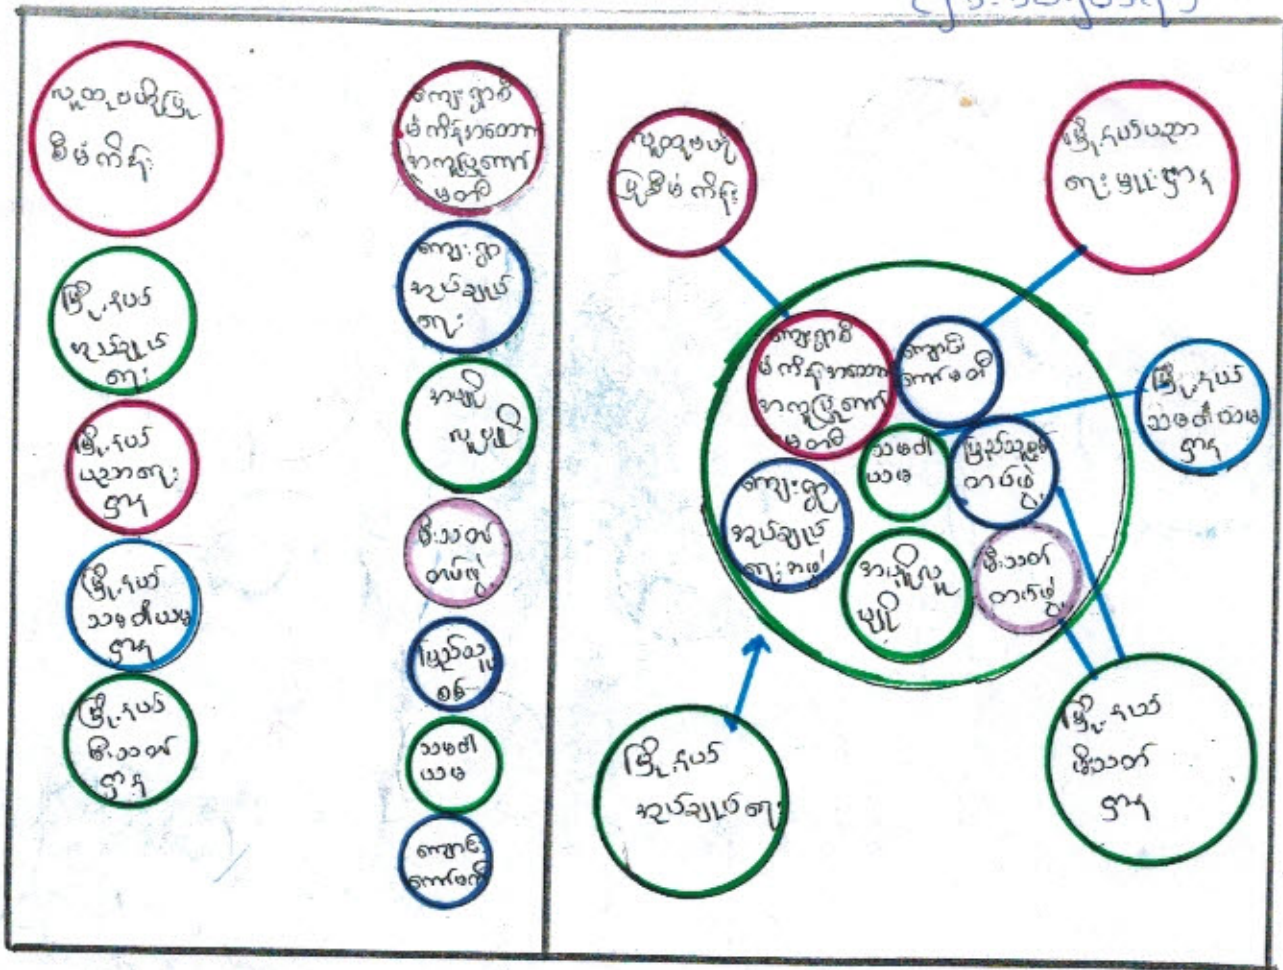 လူထုဗဟိုပြု
စီမံကိန်း
မြို့နယ်
အုပ်ချုပ်
ရေး
မြို့နယ်
ပညာရေး
ဌာန
မြို့နယ်
သမဝါယမ
ဌာန
မြို့နယ်
မီးသတ်
ဌာန
ကျေးရွာစီ
မံကိန်းအထောက်
အကူပြုကော်
မတီ
ကျေးရွာ
အုပ်ချုပ်
ရေး
အမျိုး
မီးသတ်
တပ်ဖွဲ့
ပြည်သူ့
စစ်
သမဝါ
ယမ
ကျောင်း
ကော်မတီ
လူထုဗဟို
ပြုစီမံကိန်း
မြို့နယ်ပညာ
ရေးမှူးဌာန
ကျေးရွာစီ
မံကိန်းအထောက်
အကူပြုကော်
မတီ
ကျောင်း
ကော်မတီ
မြို့နယ်
သမဝါယမ
ဌာန
သမဝါ
ယမ
ပြည်သူ့စစ်
တပ်ဖွဲ့
ကျေးရွာ
အုပ်ချုပ်
ရေးအဖွဲ့
မီးသတ်
တပ်ဖွဲ့
မြို့နယ်
အုပ်ချုပ်ရေး
မြို့နယ်
မီးသတ်
ဌာန